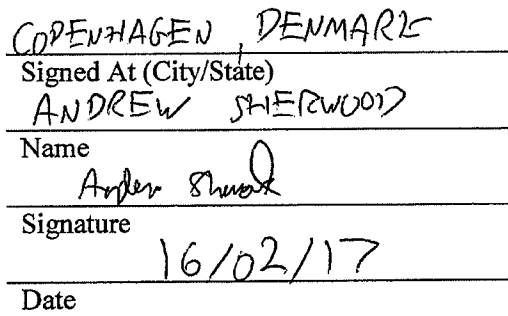 COPENHAGEN, DENMARK
Signed At (City/State)
ANDREW SHERWOOD
Name
Signature
16/02/17
Date